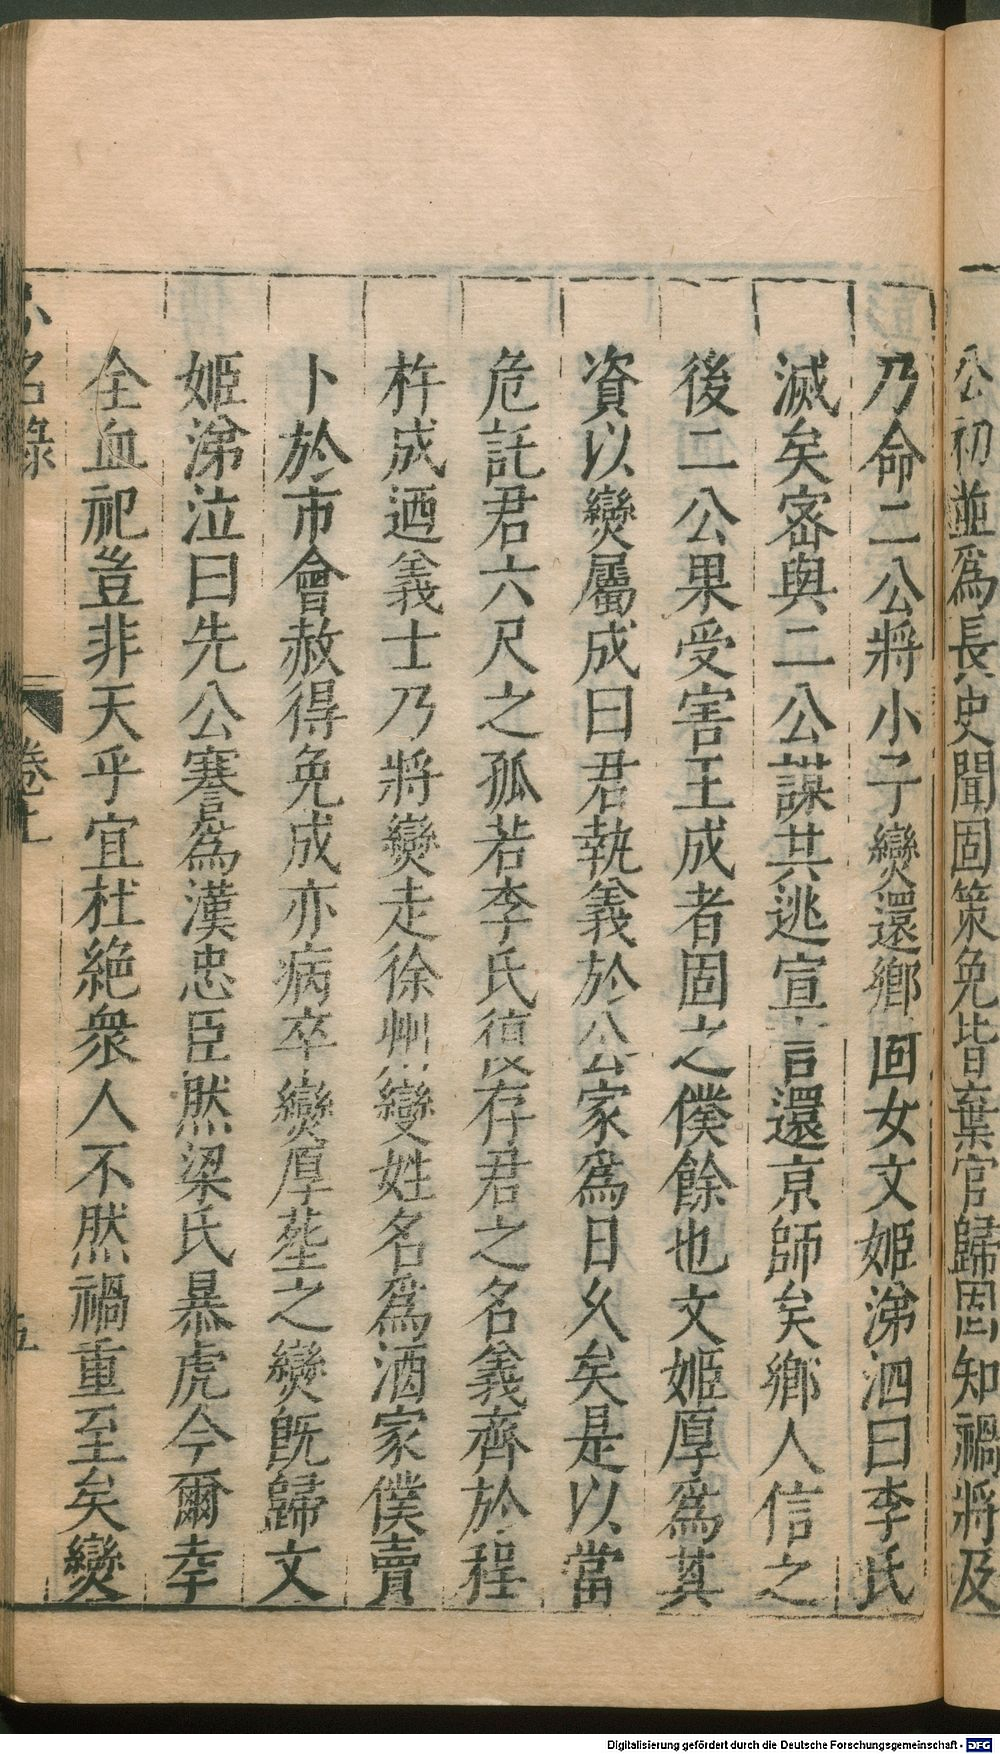 公初並爲長史聞固策免皆棄官歸固知禍將及
乃命二公將小子爕還鄉固女文姬涕泗曰李氏
滅矣密與二公謀共逃宣言還京師矣鄉人信之
後二公果受害王成者固之僕餘也文姬厚爲其
資以爕屬成曰君執義於公家爲日久矣是以當
危託君六尺之孤若李氏復存君之名義齊於程
杵成迺義士乃將爕走徐州變姓名爲酒家僕賣
卜於市會赦得免成亦病卒爕厚塟之爕旣歸文
姬涕泣曰先公謇爲漢忠臣然梁氏暴虎今爾幸
全血祀豈非天乎宜杜絶衆人不然禍重至矣爕
名錄
卷上
五
Digitalisierung gefördert durch die Deutsche Forschungsgemeinschaft - DFG